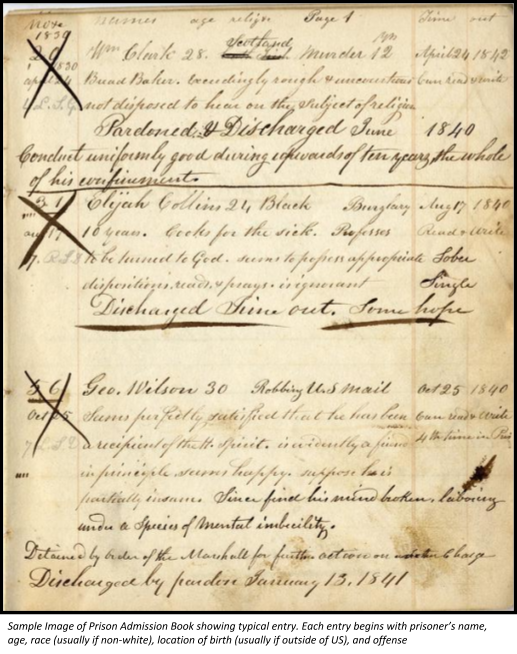 Nove names age relign Page 1 Time out
1830
20 Wm Clark 28. Scotland Murder 12 ys April 24 1842
1830
April 24 Bread Baker. Exceedingly rough & uncourteous Can read & write
not disposed to hear on the subject of religion
Pardoned & Discharged June 1840
Conduct uniformly good during upwards of ten years, the whole
of his confinement.
31 Elijah Collins 24 Black Burglary Aug 17 1840
Aug 17 10 years. Cooks for the sick. Professes Read & Write
to be turned to God. seems to possess appropriate Sober
dispositions, reads, & prays. is ignorant Single
Discharged Time out. Some hope
56 Geo. Wilson 30 Robbing U.S mail Oct 25 1840
Oct 25 Seems perfectly satisfied that he has been Can read & Write
a recipient of the H. Spirit. is evidently a 4th time in
in principle. seems happy. suppose he is
partially insane. Since find his mind broken, labouring
under a Species of Mental imbicility.
Detained by order of the Marshall for further action on Charge
Discharged by pardon January 13, 1841
Sample Image of Prison Admission Book showing typical entry. Each entry begins with prisoner's name,
age, race (usually if non-white), location of birth (usually if outside of US), and offense